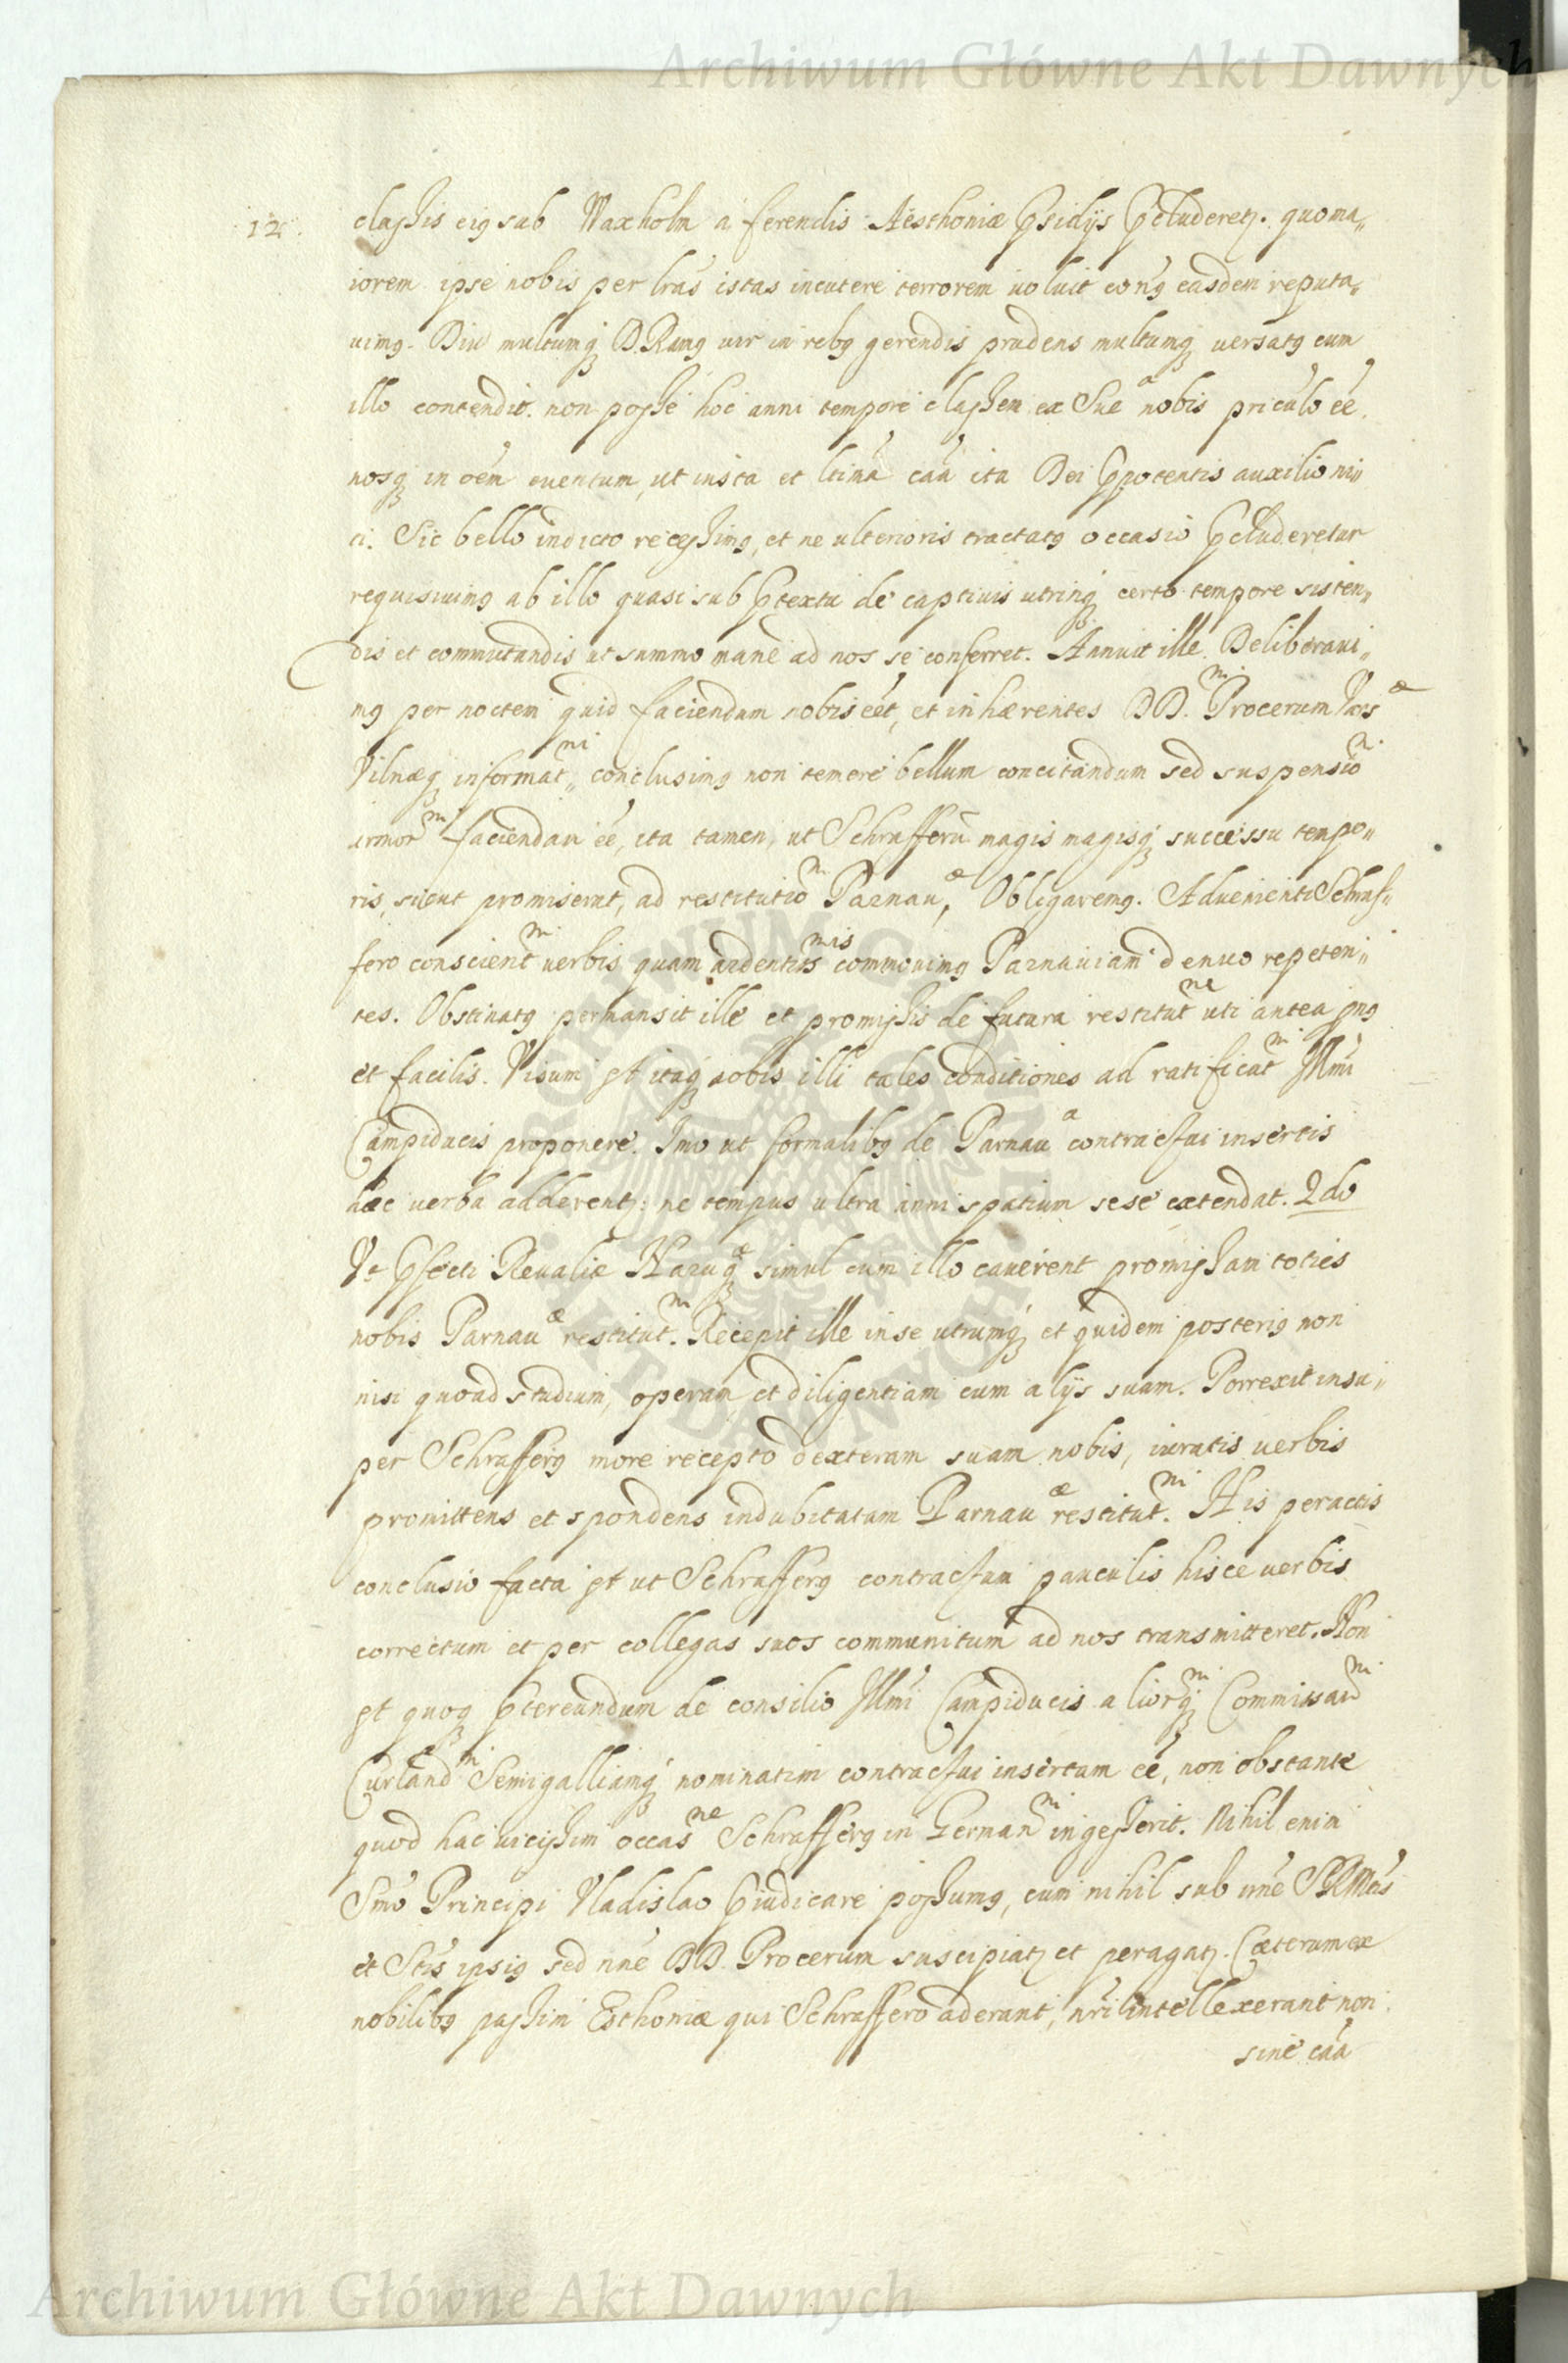 Archiwum Główne Akt Dawnych
12.
classis eiq sub Waxholm a ferendis Aesthoniæ psidijs pcluderetz. quo ma„
iorem ipse nobis per lras istas incutere terrorem uoluit eo nq easdem reputa„
uimq. Diu multumq D. Ramq uir in rebq gerendis prudens multumq uersatq cum
illo contendit. non posse hoc anni tempore classem ex Sueª nobis priculo ee.
nosq in oem euentum, ut iusta et ltima caa ita Dei ppotentis auxilio ni„
ti. Sic bello indicto recessimq, et ne ulterioris tractatq occasio pcluderetur
requisiuimq ab illo quasi sub ptextu de captiuis utrinq certo tempore sisten„
dis et commutandis ut summo mane ad nos se conferret. Annuit ille. Deliberaui„
mq per noctem quid faciendum nobis eet, et inhærentes DD. Procerum Vars æ
Vilnæq informat„ ni conclusimq non temere bellum concitandum sed suspensio m
armor m faciendam ee, ita tamen, ut Schrafferu magis magisq successu tempo„
ris, sicut promiserat, ad restitutio m Parnau æ, Obligaremq. Aduenienti Schraf„
fero conscient m uerbis quam ardentis mis commouimq Parnauiam denuo repeten„
tes. Obstinatq permansit ille et promissis de futura restitut ne uti antea pnq
et facilis. Visum st itaq nobis illi tales conditiones ad ratificat m Illmi
Campiducis proponere. Imo ut formalibq de Parnau a contractui insertis
hæc uerba adderentz: ne tempus ultra anni spatium sese extendat. 2do
Vt pfecti Reualiæ Naruæq simul cum illo cauerent promissam toties
nobis Parnau æ restitut m. Recepit ille in se utrumq et quidem posteriq non
nisi quoad studium, operam et diligentiam cum alijs suam. Porrexit insu„
per Schrafferq more recepto dexteram suam nobis, iuratis uerbis
promittens et spondens indubitatam Parnau æ restitut m. His peractis
conclusio facta st ut Schrafferq contractum pauculis hisce uerbis
correctum et per collegas suos communitum ad nos transmitteret. Non
st quoq ptereundum de consilio Illmi Campiducis aliorq m Commissar m
Curland m Semigalliamq nominatim contractui insertum ee, non obstante
quod hac uicissim occas ne Schrafferq in German m ingesserit. Nihil enim
Smo Principi Vladislao piudicare possumq, cum nihil sub nne SRMtis
et Stis ipsiq sed nne DD. Procerum suscipiatz et peragatz. Cæterum ex
nobilibq passim Esthoniæ qui Schraffero aderant, nri intellexerant non
sine caa
Archiwum Główne Akt Dawnych